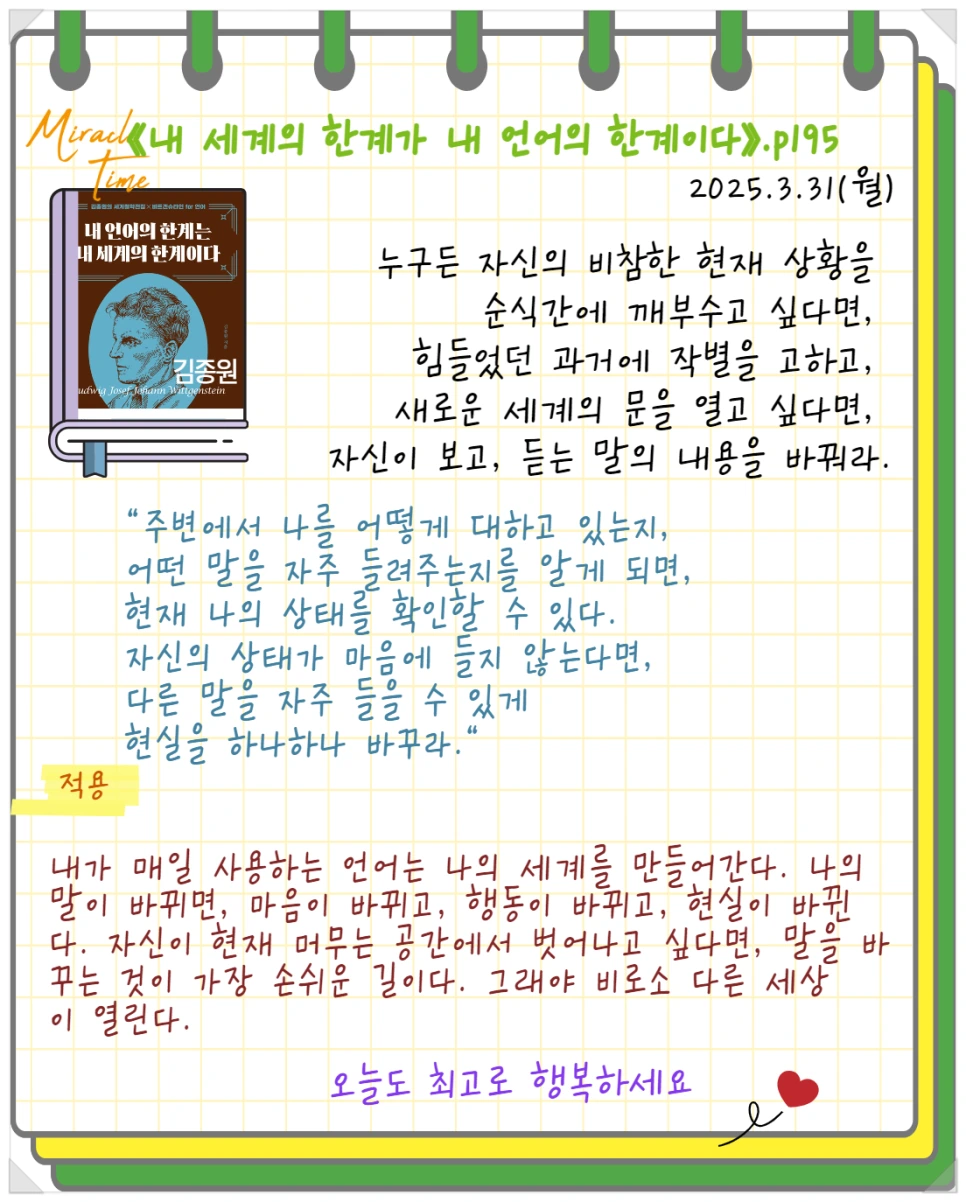 Miracle
Time
《내 세계의 한계가 내 언어의 한계이다》.p195
2025.3.31(월)
김종원의 세계철학전집 × 비트겐슈타인 for 언어
내 언어의 한계는
내 세계의 한계이다
김종원
udwig Josef Johann Wittgenstein
누구든 자신의 비참한 현재 상황을
순식간에 깨부수고 싶다면,
힘들었던 과거에 작별을 고하고,
새로운 세계의 문을 열고 싶다면,
자신이 보고, 듣는 말의 내용을 바꿔라.
“주변에서 나를 어떻게 대하고 있는지,
어떤 말을 자주 들려주는지를 알게 되면,
현재 나의 상태를 확인할 수 있다.
자신의 상태가 마음에 들지 않는다면,
다른 말을 자주 들을 수 있게
현실을 하나하나 바꾸라.“
적용
내가 매일 사용하는 언어는 나의 세계를 만들어간다. 나의
말이 바뀌면, 마음이 바뀌고, 행동이 바뀌고, 현실이 바뀐
다. 자신이 현재 머무는 공간에서 벗어나고 싶다면, 말을 바
꾸는 것이 가장 손쉬운 길이다. 그래야 비로소 다른 세상
이 열린다.
오늘도 최고로 행복하세요